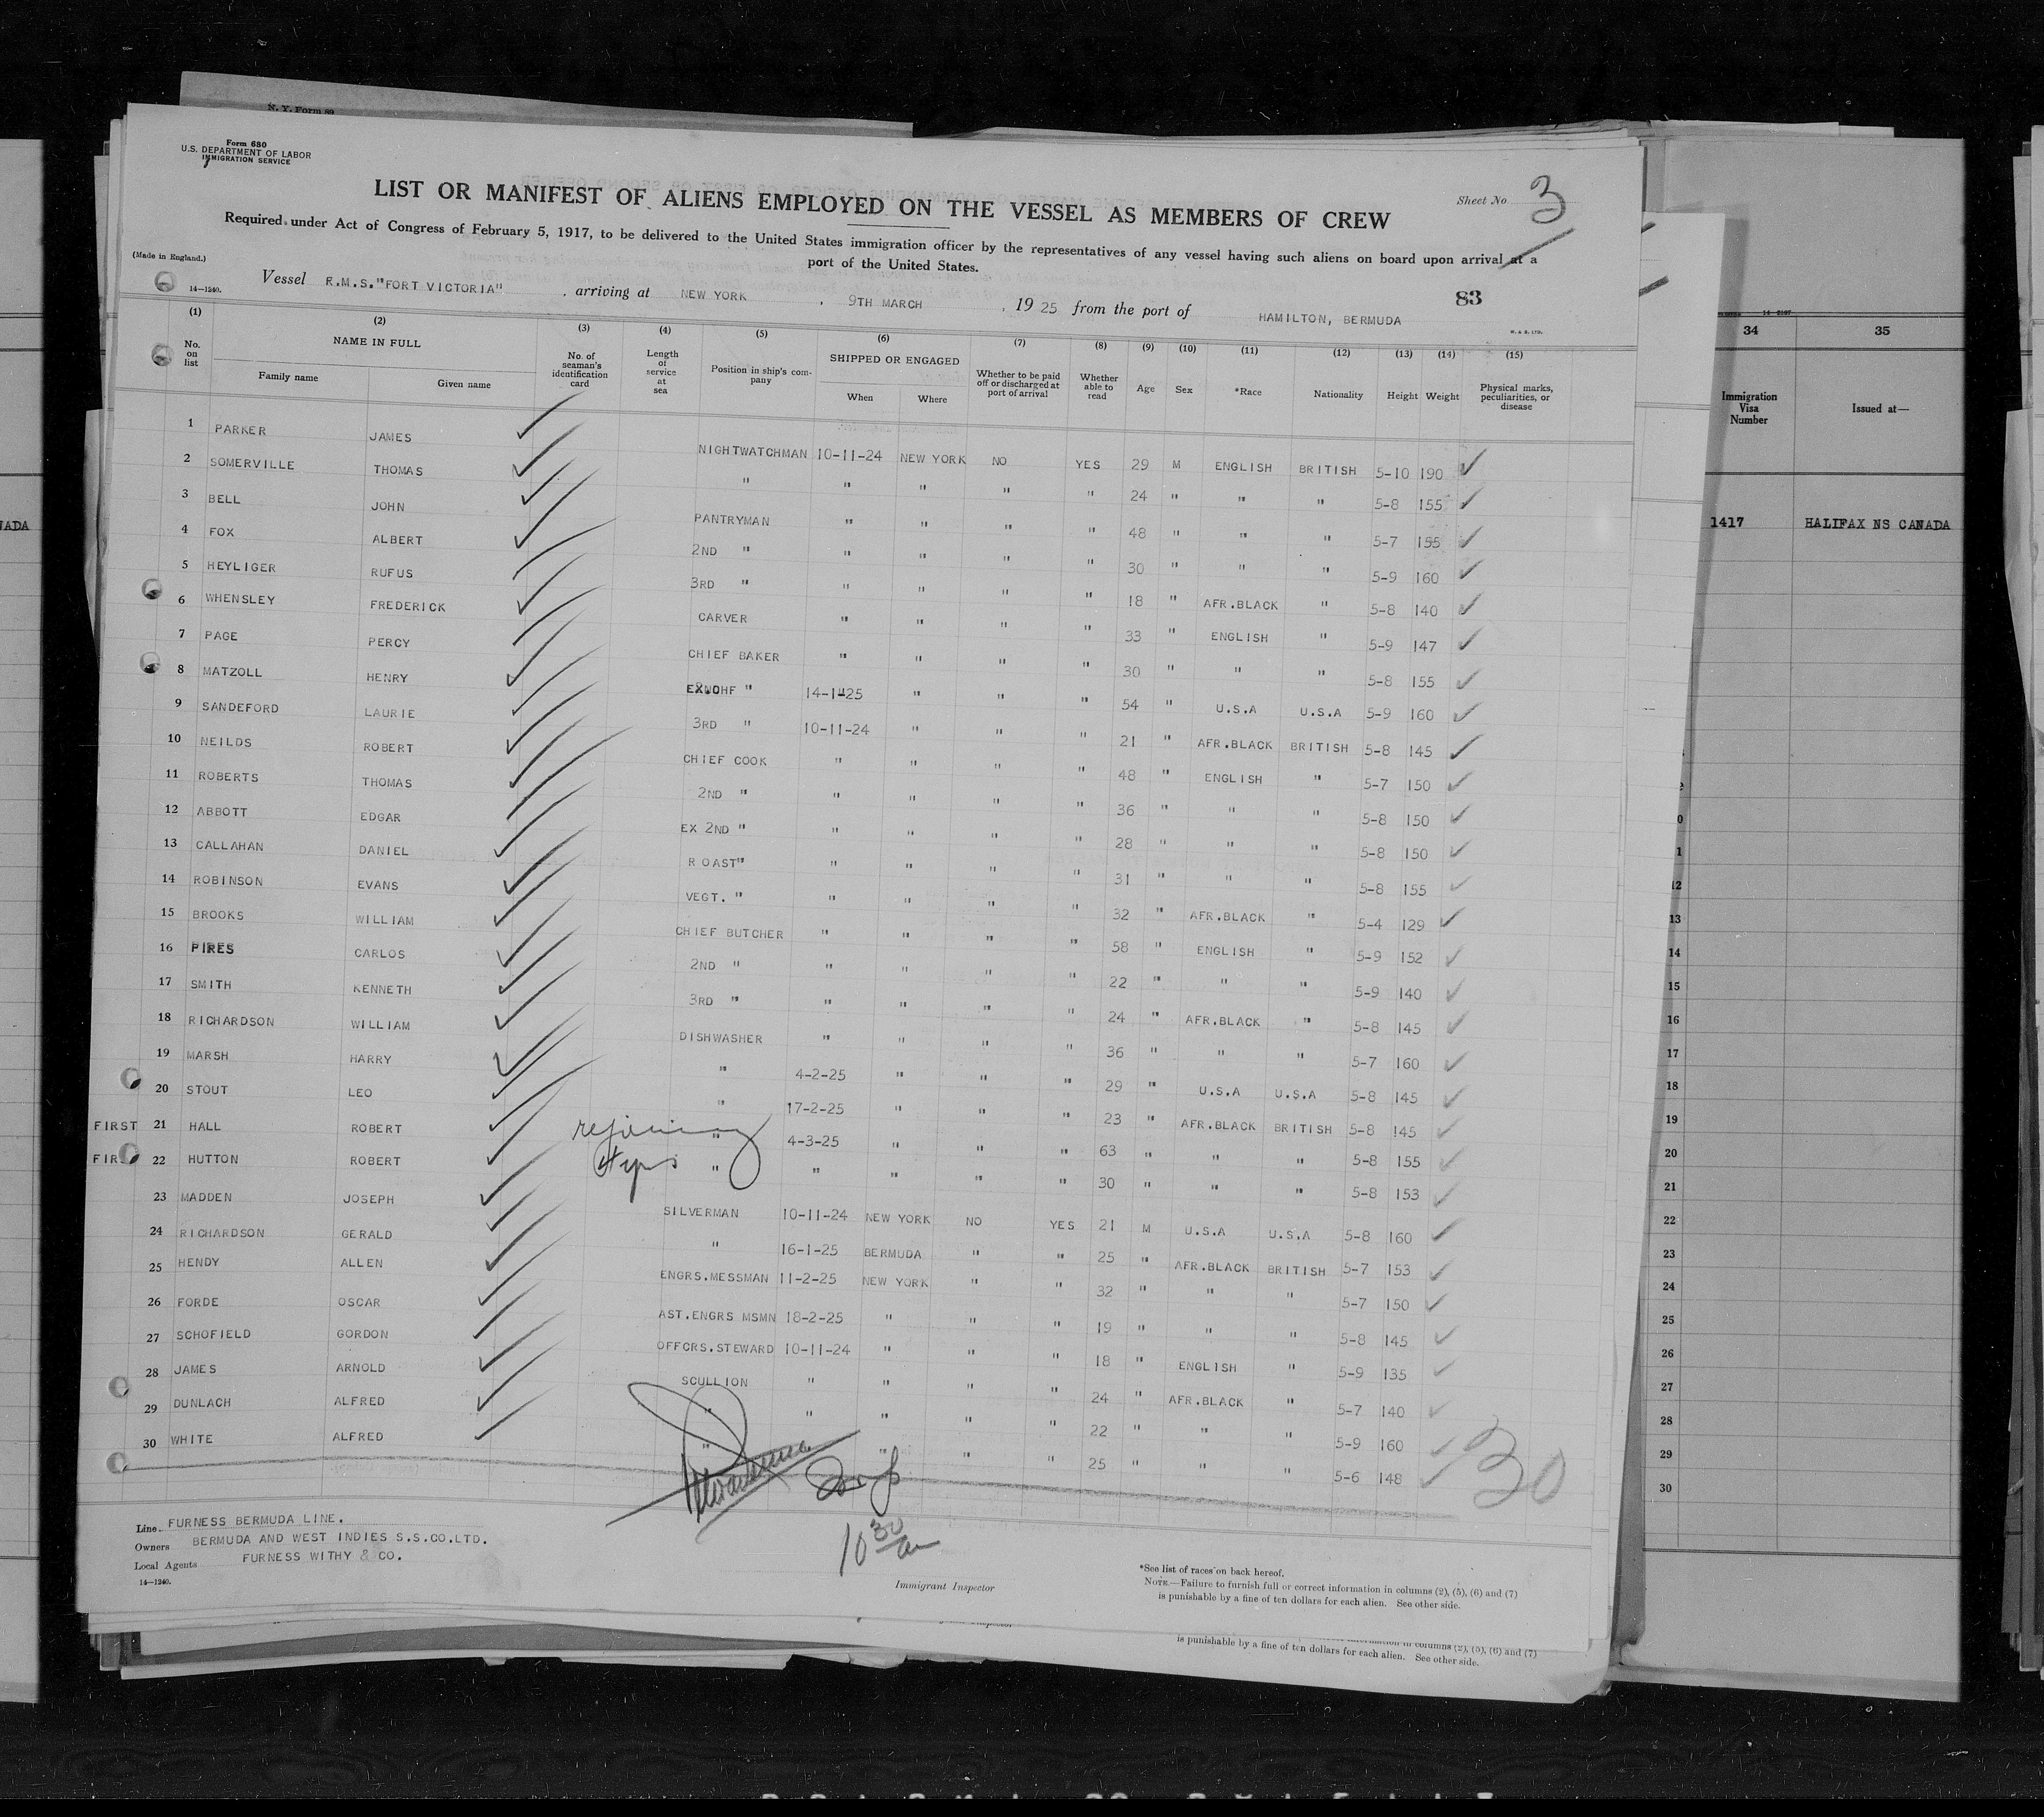 N. Y. Form 89
Form 680
U.S. DEPARTMENT OF LABOR
IMMIGRATION SERVICE
Sheet No 3
LIST OR MANIFEST OF ALIENS EMPLOYED ON THE VESSEL AS MEMBERS OF CREW
Required under Act of Congress of February 5, 1917, to be delivered to the United States immigration officer by the representatives of any vessel having such aliens on board upon arrival at a
port of the United States.
(Made in England.)
14—1240.
Vessel R.M.S."FORT VICTORIA" , arriving at NEW YORK , 9TH MARCH , 19 25 from the port of HAMILTON, BERMUDA
83
W. & S. LTD.
(1) (2) (3) (4) (5) (6) (7) (8) (9) (10) (11) (12) (13) (14) (15)
No. on list NAME IN FULL Family name Given name No. of seaman's identification card Length of service at sea Position in ship's company SHIPPED OR ENGAGED When Where Whether to be paid off or discharged at port of arrival Whether able to read Age Sex *Race Nationality Height Weight Physical marks, peculiarities, or disease
1 PARKER JAMES NIGHTWATCHMAN 10-11-24 NEW YORK NO YES 29 M ENGLISH BRITISH 5-10 190
2 SOMERVILLE THOMAS " " " " " 24 " " " 5-8 155
3 BELL JOHN PANTRYMAN " " " " 48 " " " 5-7 155
4 FOX ALBERT 2ND " " " " " 30 " " " 5-9 160
5 HEYLIGER RUFUS 3RD " " " " " 18 " AFR.BLACK " 5-8 140
6 WHENSLEY FREDERICK CARVER " " " " 33 " ENGLISH " 5-9 147
7 PAGE PERCY CHIEF BAKER " " " " 30 " " " 5-8 155
8 MATZOLL HENRY " 14-1-25 " " " 54 " U.S.A U.S.A 5-9 160
9 SANDEFORD LAURIE 3RD " 10-11-24 " " " 21 " AFR.BLACK BRITISH 5-8 145
10 NEILDS ROBERT CHIEF COOK " " " " 48 " ENGLISH " 5-7 150
11 ROBERTS THOMAS 2ND " " " " " 36 " " " 5-8 150
12 ABBOTT EDGAR EX 2ND " " " " " 28 " " " 5-8 150
13 CALLAHAN DANIEL ROAST" " " " " 31 " " " 5-8 155
14 ROBINSON EVANS VEGT. " " " " " 32 " AFR.BLACK " 5-4 129
15 BROOKS WILLIAM CHIEF BUTCHER " " " " 58 " ENGLISH " 5-9 152
16 PIRES CARLOS 2ND " " " " " 22 " " " 5-9 140
17 SMITH KENNETH 3RD " " " " " 24 " AFR.BLACK " 5-8 145
18 RICHARDSON WILLIAM DISHWASHER " " " " 36 " " " 5-7 160
19 MARSH HARRY " 4-2-25 " " " 29 " U.S.A U.S.A 5-8 145
20 STOUT LEO " 17-2-25 " " " 23 " AFR.BLACK BRITISH 5-8 145
FIRST 21 HALL ROBERT " 4-3-25 " " " 63 " " " 5-8 155
22 HUTTON ROBERT " " " " " 30 " " " 5-8 153
23 MADDEN JOSEPH SILVERMAN 10-11-24 NEW YORK NO YES 21 M U.S.A U.S.A 5-8 160
24 RICHARDSON GERALD " 16-1-25 BERMUDA " " 25 " AFR.BLACK BRITISH 5-7 153
25 HENDY ALLEN ENGRS.MESSMAN 11-2-25 NEW YORK " " 32 " " " 5-7 150
26 FORDE OSCAR AST.ENGRS MSMN 18-2-25 " " " 19 " " " 5-8 145
27 SCHOFIELD GORDON OFFCRS.STEWARD 10-11-24 " " " 18 " ENGLISH " 5-9 135
28 JAMES ARNOLD SCULLION " " " " 24 " AFR.BLACK " 5-7 140
29 DUNLACH ALFRED " " " " " 22 " " " 5-9 160
30 WHITE ALFRED " " " " 25 " " " 5-6 148
30
10 30 am
Line FURNESS BERMUDA LINE.
Owners BERMUDA AND WEST INDIES S.S.CO.LTD.
Local Agents FURNESS WITHY & CO.
14—1240.
Immigrant Inspector
*See list of races on back hereof.
NOTE.—Failure to furnish full or correct information in columns (2), (5), (6) and (7)
is punishable by a fine of ten dollars for each alien. See other side.
is punishable by a fine of ten dollars for each alien. See other side.
34 35
Immigration Visa Number Issued at—
1417 HALIFAX NS CANADA
12
13
14
15
16
17
18
19
20
21
22
23
24
25
26
27
28
29
30